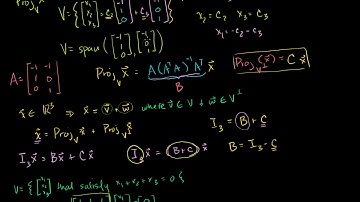 Proj_V
V = { [x₁ x₂ x₃] = c₂ [-1 1 0] + c₃ [-1 0 1] }
x₂ = c₂  x₃ = c₃
x₁ = -c₂ - c₃
V = span ( [-1 1 0], [-1 0 1] )
A = [-1 -1 1 0 0 1]
Proj_V x⃗ = A(AᵀA)⁻¹Aᵀ x⃗
B
Proj_V⊥(x⃗) = C x⃗
x⃗ ∈ ℝ³ ⇒ x⃗ = v⃗ + w⃗ where v⃗ ∈ V + w⃗ ∈ V⊥
x⃗ = Proj_V x⃗ + Proj_V⊥ x⃗
I₃ = B + C
I₃x⃗ = Bx⃗ + Cx⃗
I₃x⃗ = (B + C) x⃗
B = I₃ - C
V = { [x₁ x₂ x₃] that satisfy x₁ + x₂ + x₃ = 0 }